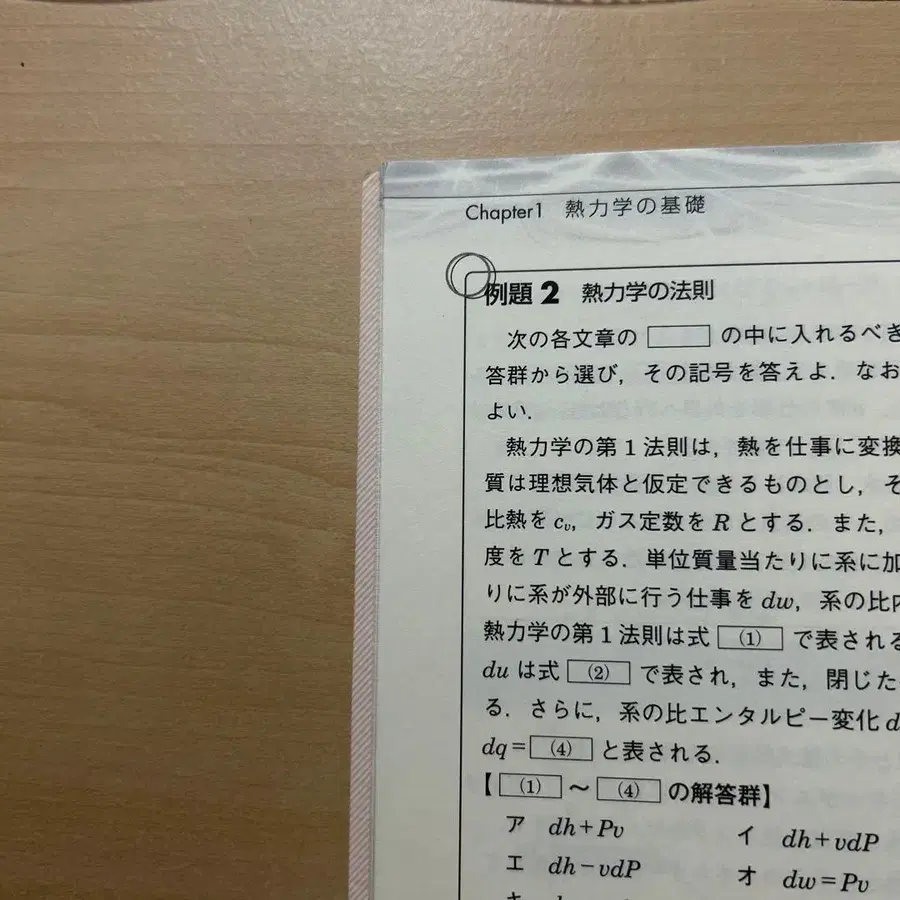 Chapter1 熱力学の基礎
例題 2 熱力学の法則
次の各文章の の中に入れるべき
答群から選び，その記号を答えよ．なお
よい．
熱力学の第1法則は，熱を仕事に変換
質は理想気体と仮定できるものとし，そ
比熱を cv，ガス定数を R とする．また，
度を T とする．単位質量当たりに系に加
りに系が外部に行う仕事を dw，系の比内
熱力学の第1法則は式 (1) で表される
du は式 (2) で表され，また，閉じた
る．さらに，系の比エンタルピー変化 d
dq= (4) と表される．
【 (1) ～ (4) の解答群】
ア dh+Pv イ dh+vdP
エ dh-vdP オ dw=Pv